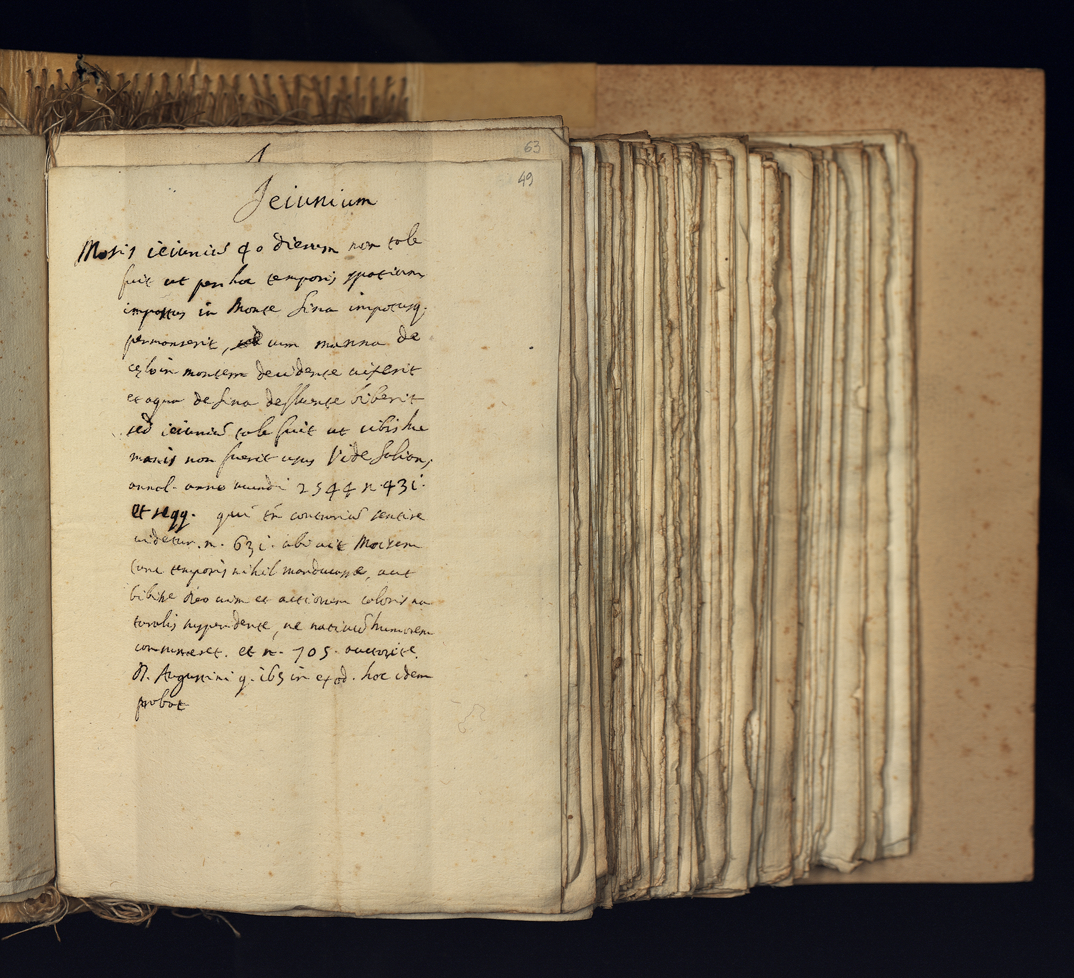 63
49
Jeiunium
Mosis ieiuniũ 40 dierum non tale
fuit ut per hoc temporis spatium
impastus in Monte Sina impotusq;
permanserit, cum manna de
cęlo in montem decidente uixerit
et aqua de Sina defluente biberit
sed ieiuniũ tale fuit ut cibis hu
manis non fuerit usus Vide Salian;
annal. anno mundi 2544 n. 431.
et seqq. qui tñ contrariũ sentire
uidetur. n. 631. ubi ait Moysem
temporis nihil manducasse, aut
bibisse Deo uim et actionem caloris na
turalis suspendente, ne natiuũ humorem
consumeret. et n. 705. auctorite
D. Augustini q. 165 in exod. hoc idem
probat